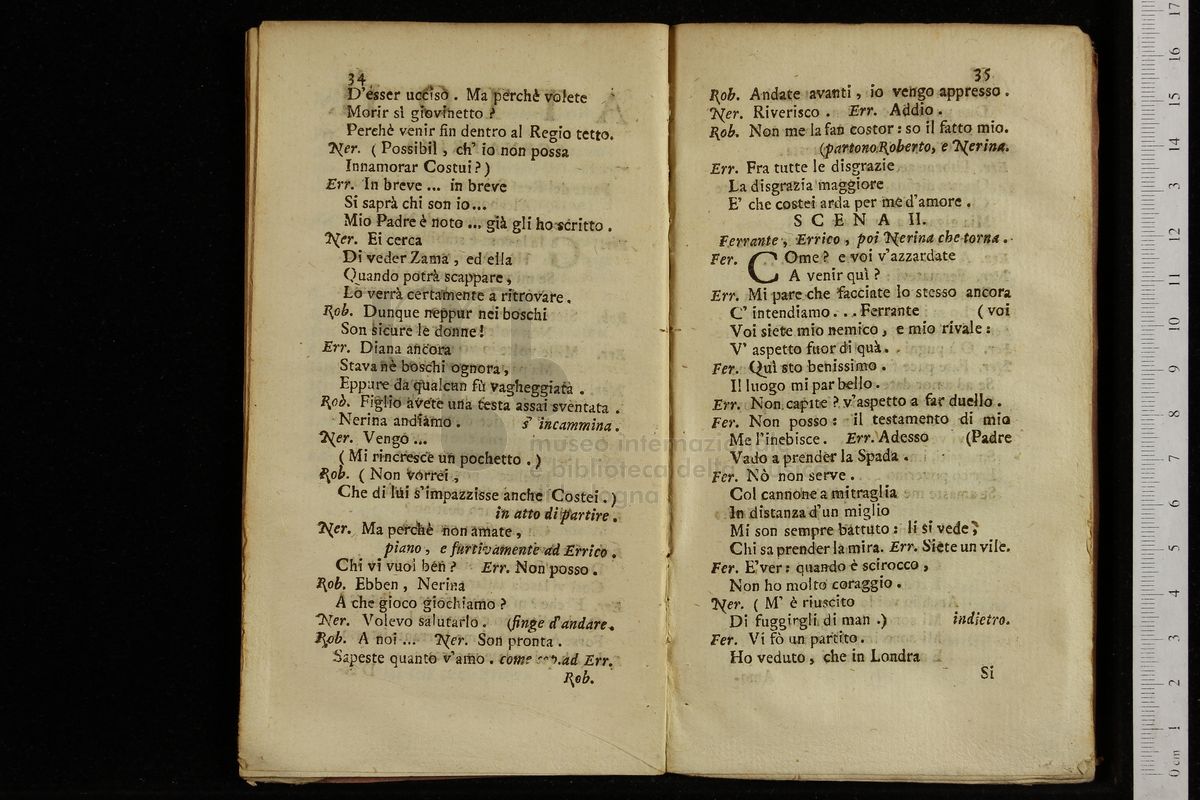 34
D'esser ucciso . Ma perchè volete
Morir sì giovinetto ?
Perchè venir fin dentro al Regio tetto.
Ner. ( Possibil , ch' io non possa
Innamorar Costui ? )
Err. In breve ... in breve
Si saprà chi son io ...
Mio Padre è noto ... già gli ho scritto .
Ner. Ei cerca
Di veder Zama , ed ella
Quando potrà scappare ,
Lo verrà certamente a ritrovare .
Rob. Dunque neppur nei boschi
Son sicure le donne !
Err. Diana ancora
Stava nè boschi ognora ,
Eppure da qualcun fù vagheggiata .
Rob. Figlio avete una testa assai sventata .
Nerina andiamo . s' incammina .
Ner. Vengo ...
( Mi rincresce un pochetto . )
Rob. ( Non vorrei ,
Che di lui s'impazzisse anche Costei . )
in atto di partire .
Ner. Ma perchè non amate ,
piano , e furtivamente ad Errico .
Chi vi vuol ben ? Err. Non posso .
Rob. Ebben , Nerina
A che gioco giochiamo ?
Ner. Volevo salutarlo . (finge d'andare .
Rob. A noi ... Ner. Son pronta .
Sapeste quanto v'amo . come sop. ad Err.
Rob.
35
Rob. Andate avanti , io vengo appresso .
Ner. Riverisco . Err. Addio .
Rob. Non me la fan costor : so il fatto mio.
(partono Roberto, e Nerina.
Err. Fra tutte le disgrazie
La disgrazia maggiore
E' che costei arda per me d'amore .
SCENA II.
Ferrante , Errico , poi Nerina che torna .
Fer. COme ? e voi v'azzardate
A venir quì ?
Err. Mi pare che facciate lo stesso ancora
C' intendiamo . . . Ferrante ( voi
Voi siete mio nemico , e mio rivale :
V' aspetto fuor di quà .
Fer. Quì sto benissimo .
Il luogo mi par bello .
Err. Non capite ? v'aspetto a far duello .
Fer. Non posso : il testamento di mio
Me l'inebisce . Err. Adesso (Padre
Vado a prender la Spada .
Fer. Nò non serve .
Col cannone a mitraglia
In distanza d'un miglio
Mi son sempre battuto : lì si vede ;
Chi sa prender la mira. Err. Siete un vile.
Fer. E'ver : quando è scirocco ,
Non ho molto coraggio .
Ner. ( M' è riuscito
Di fuggirgli di man .) indietro.
Fer. Vi fò un partito .
Ho veduto , che in Londra
Si
museo internazionale
e biblioteca della musica
di bologna
0 cm 1 2 3 4 5 6 7 8 9 10 11 12 13 14 15 16 17